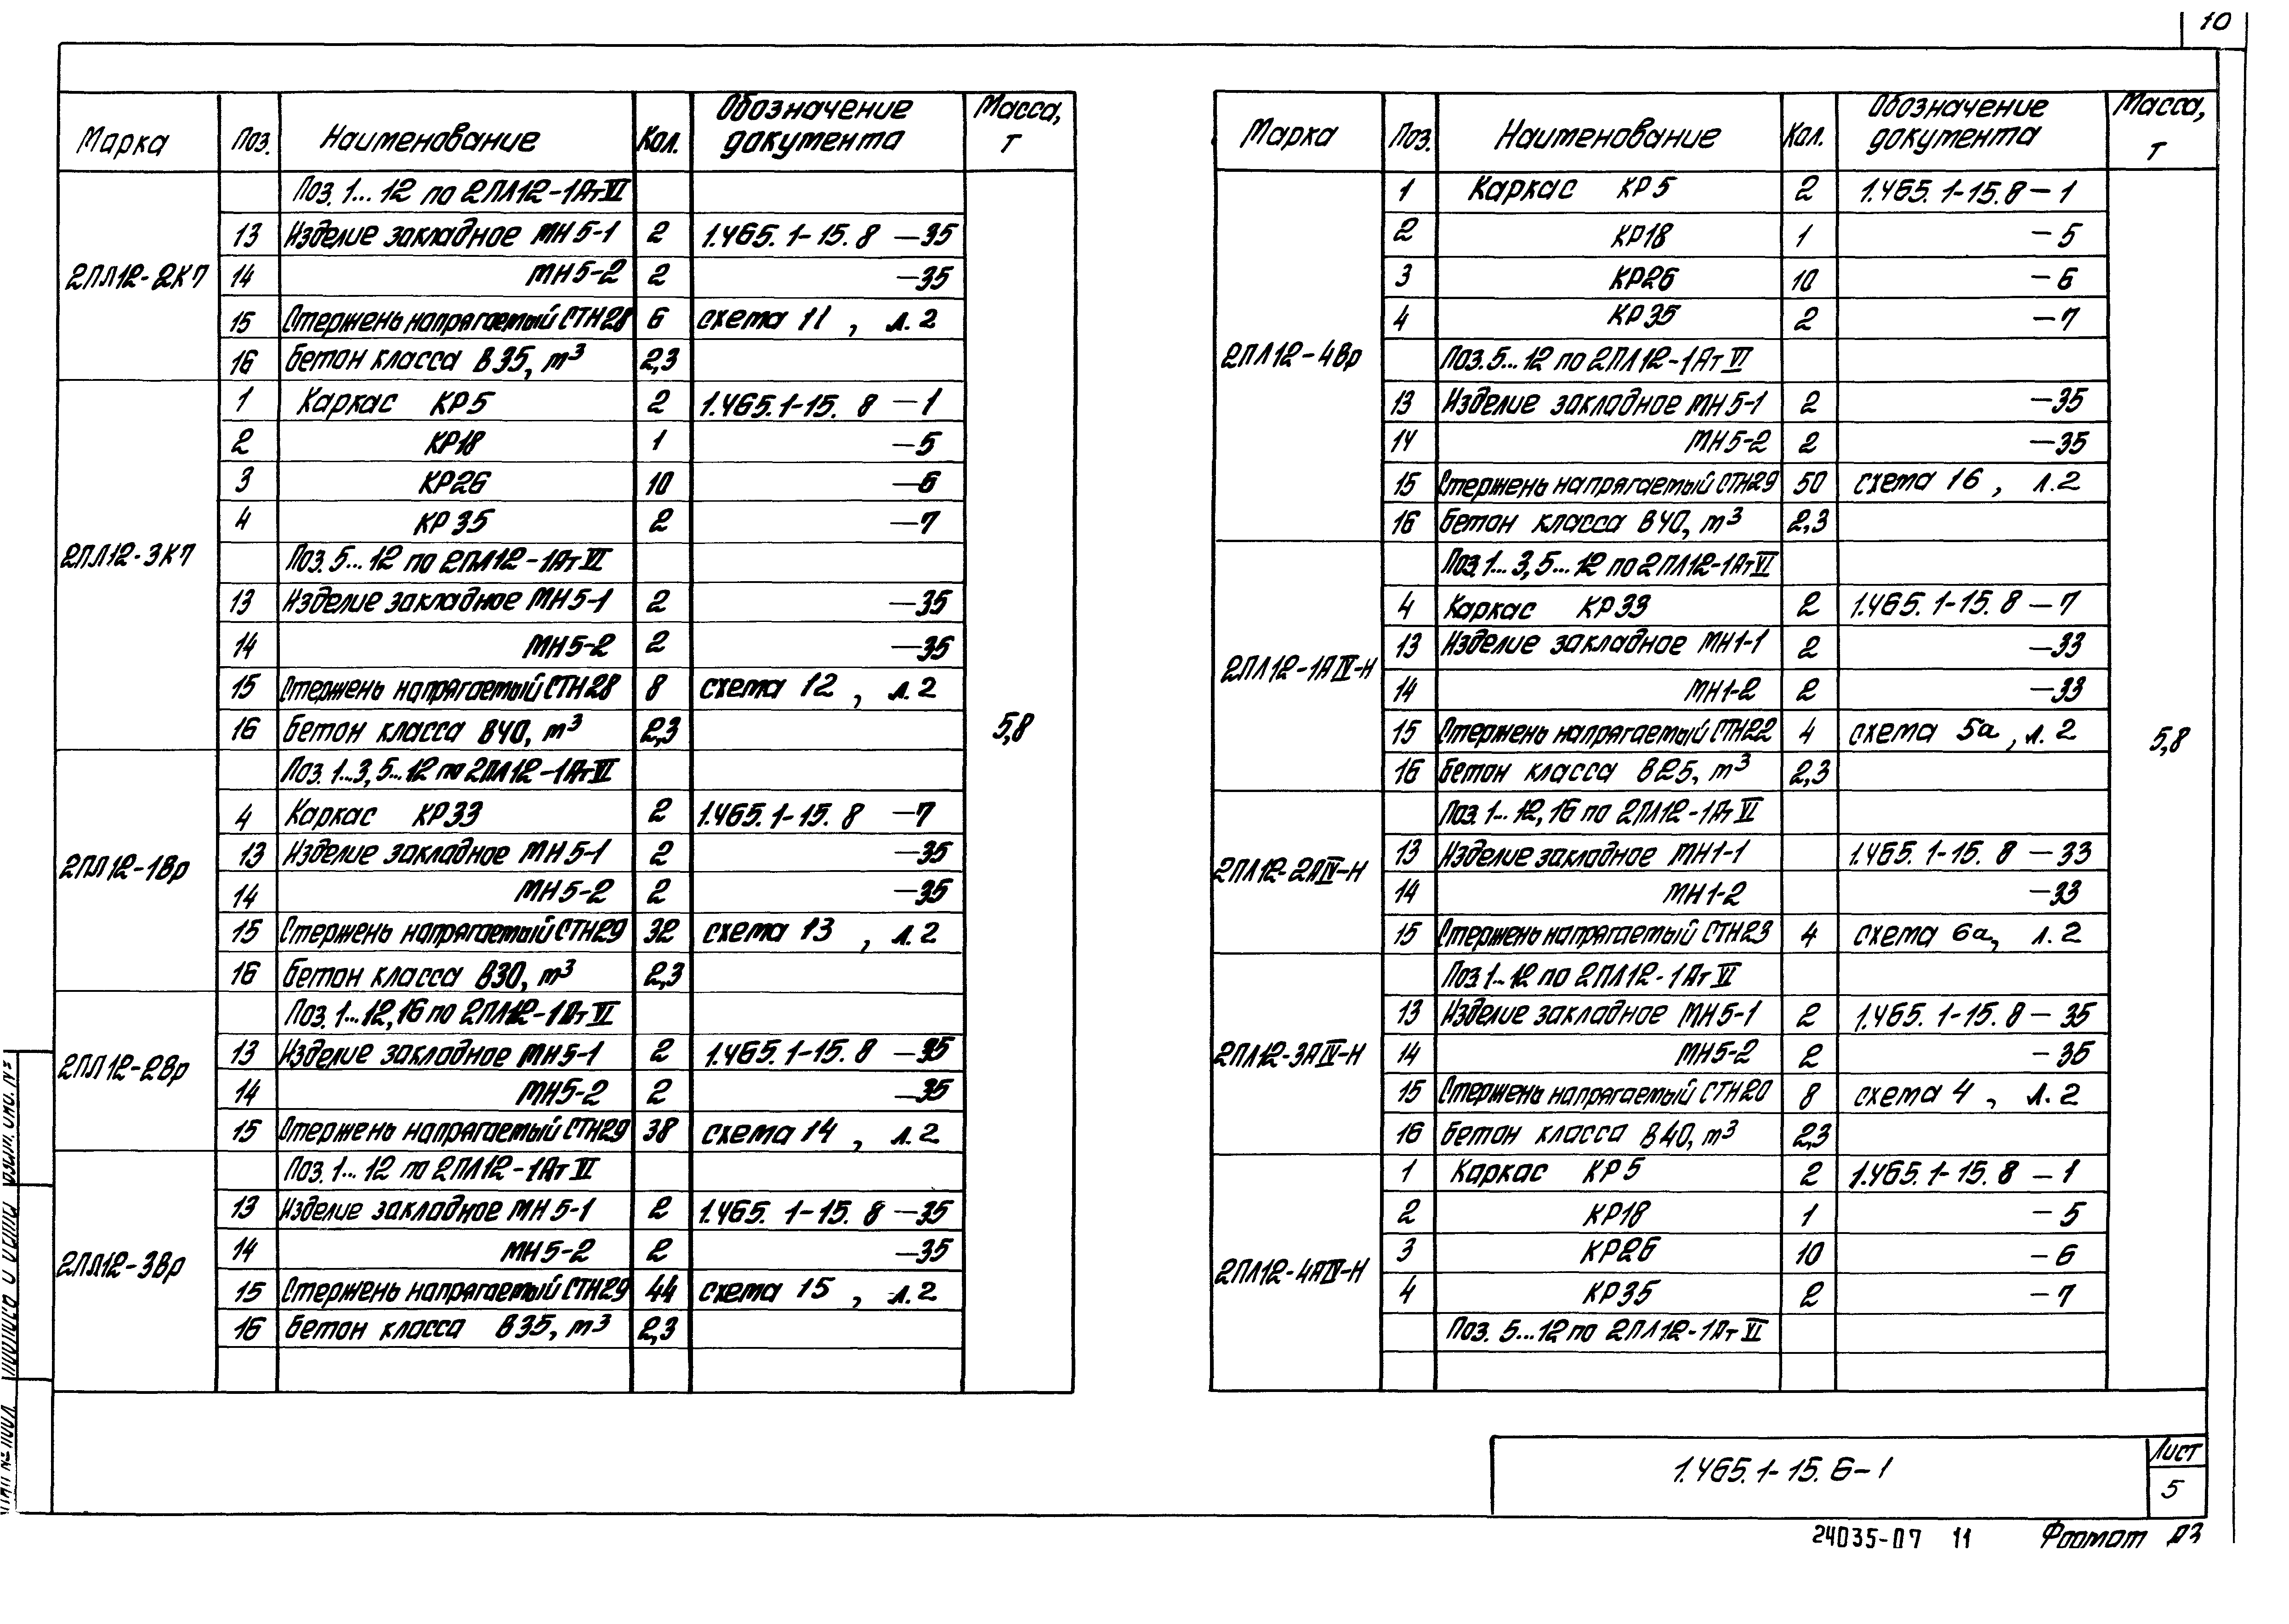 10
Марка Поз. Наименование Кол. Обозначение документа Масса, т
2ПЛ12-2К7
Поз. 1... 12 по 2ПЛ12-1АтVI
13 Изделие закладное МН5-1 2 1.465.1-15.8 -35
14 МН5-2 2 -35
15 Стержень напрягаемый СТН28 6 схема 11, л.2
16 Бетон класса В35, м³ 2,3
2ПЛ12-3К7
1 Каркас КР5 2 1.465.1-15.8 -1
2 КР18 1 -5
3 КР26 10 -6
4 КР35 2 -7
Поз. 5... 12 по 2ПЛ12-1АтVI
13 Изделие закладное МН5-1 2 -35
14 МН5-2 2 -35
15 Стержень напрягаемый СТН28 8 схема 12, л.2
16 Бетон класса В40, м³ 2,3
5,8
2ПЛ12-1Вр
Поз. 1...3, 5...12 по 2ПЛ12-1АтVI
4 Каркас КР33 2 1.465.1-15.8 -7
13 Изделие закладное МН5-1 2 -35
14 МН5-2 2 -35
15 Стержень напрягаемый СТН29 32 схема 13, л.2
16 Бетон класса В30, м³ 2,3
2ПЛ12-2Вр
Поз. 1...12, 16 по 2ПЛ12-1АтVI
13 Изделие закладное МН5-1 2 1.465.1-15.8 -35
14 МН5-2 2 -35
15 Стержень напрягаемый СТН29 38 схема 14, л.2
2ПЛ12-3Вр
Поз. 1... 12 по 2ПЛ12-1АтVI
13 Изделие закладное МН5-1 2 1.465.1-15.8 -35
14 МН5-2 2 -35
15 Стержень напрягаемый СТН29 44 схема 15, л.2
16 Бетон класса В35, м³ 2,3
Марка Поз. Наименование Кол. Обозначение документа Масса, т
2ПЛ12-4Вр
1 Каркас КР5 2 1.465.1-15.8 -1
2 КР18 1 -5
3 КР26 10 -6
4 КР35 2 -7
Поз. 5... 12 по 2ПЛ12-1АтVI
13 Изделие закладное МН5-1 2 -35
14 МН5-2 2 -35
15 Стержень напрягаемый СТН29 50 схема 16, л.2
16 Бетон класса В40, м³ 2,3
2ПЛ12-1АIV-Н
Поз. 1... 3, 5... 12 по 2ПЛ12-1АтVI
4 Каркас КР33 2 1.465.1-15.8 -7
13 Изделие закладное МН1-1 2 -33
14 МН1-2 2 -33
15 Стержень напрягаемый СТН22 4 схема 5а, л.2
16 Бетон класса В25, м³ 2,3
5,8
2ПЛ12-2АIV-Н
Поз. 1... 12, 16 по 2ПЛ12-1АтVI
13 Изделие закладное МН1-1 2 1.465.1-15.8 -33
14 МН1-2 2 -33
15 Стержень напрягаемый СТН23 4 схема 6а, л.2
2ПЛ12-3АIV-Н
Поз. 1... 12 по 2ПЛ12-1АтVI
13 Изделие закладное МН5-1 2 1.465.1-15.8 -35
14 МН5-2 2 -35
15 Стержень напрягаемый СТН20 8 схема 4, л.2
16 Бетон класса В40, м³ 2,3
2ПЛ12-4АIV-Н
1 Каркас КР5 2 1.465.1-15.8 -1
2 КР18 1 -5
3 КР26 10 -6
4 КР35 2 -7
Поз. 5...12 по 2ПЛ12-1АтVI
1.465.1-15.6-1
Лист
5
24035-07 11 Формат А3